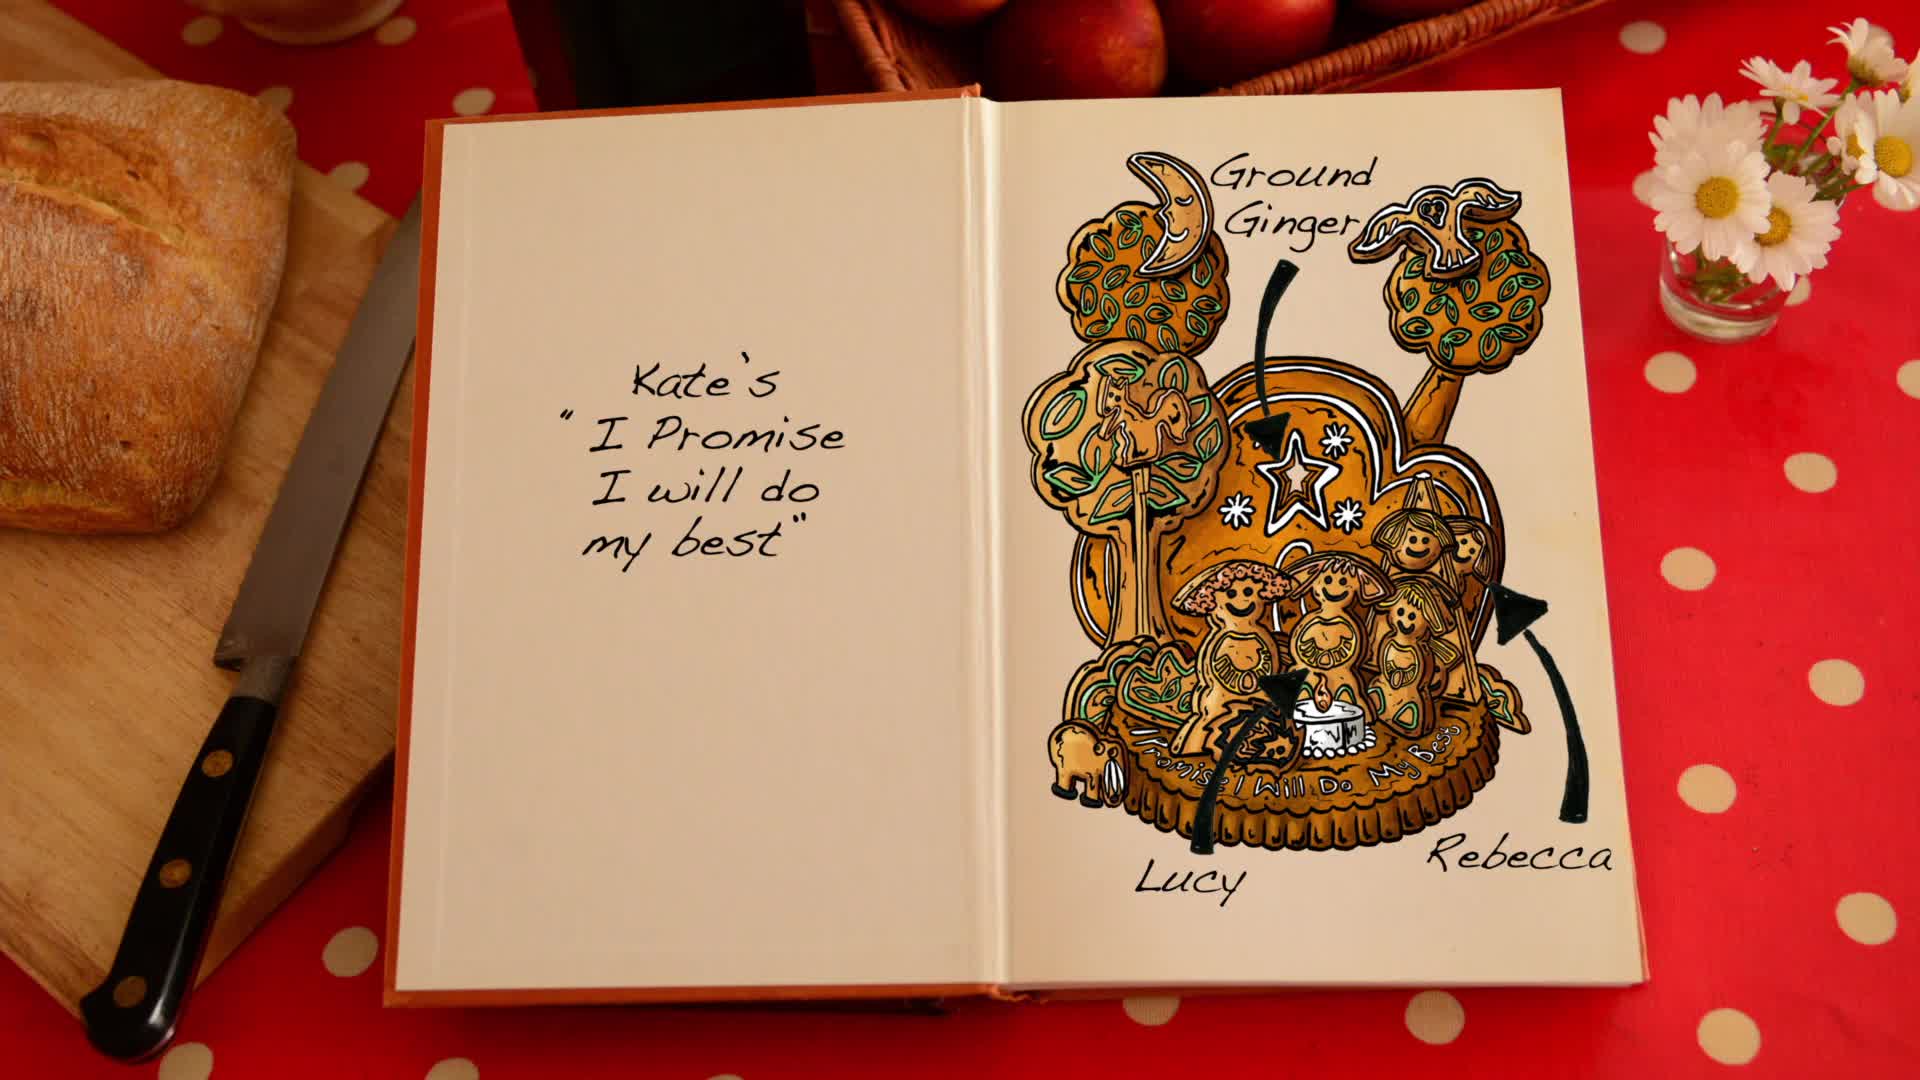 Kate's
"I Promise
I will do
my best"
Ground
Ginger
I Promise I Will Do My Best
Lucy
Rebecca